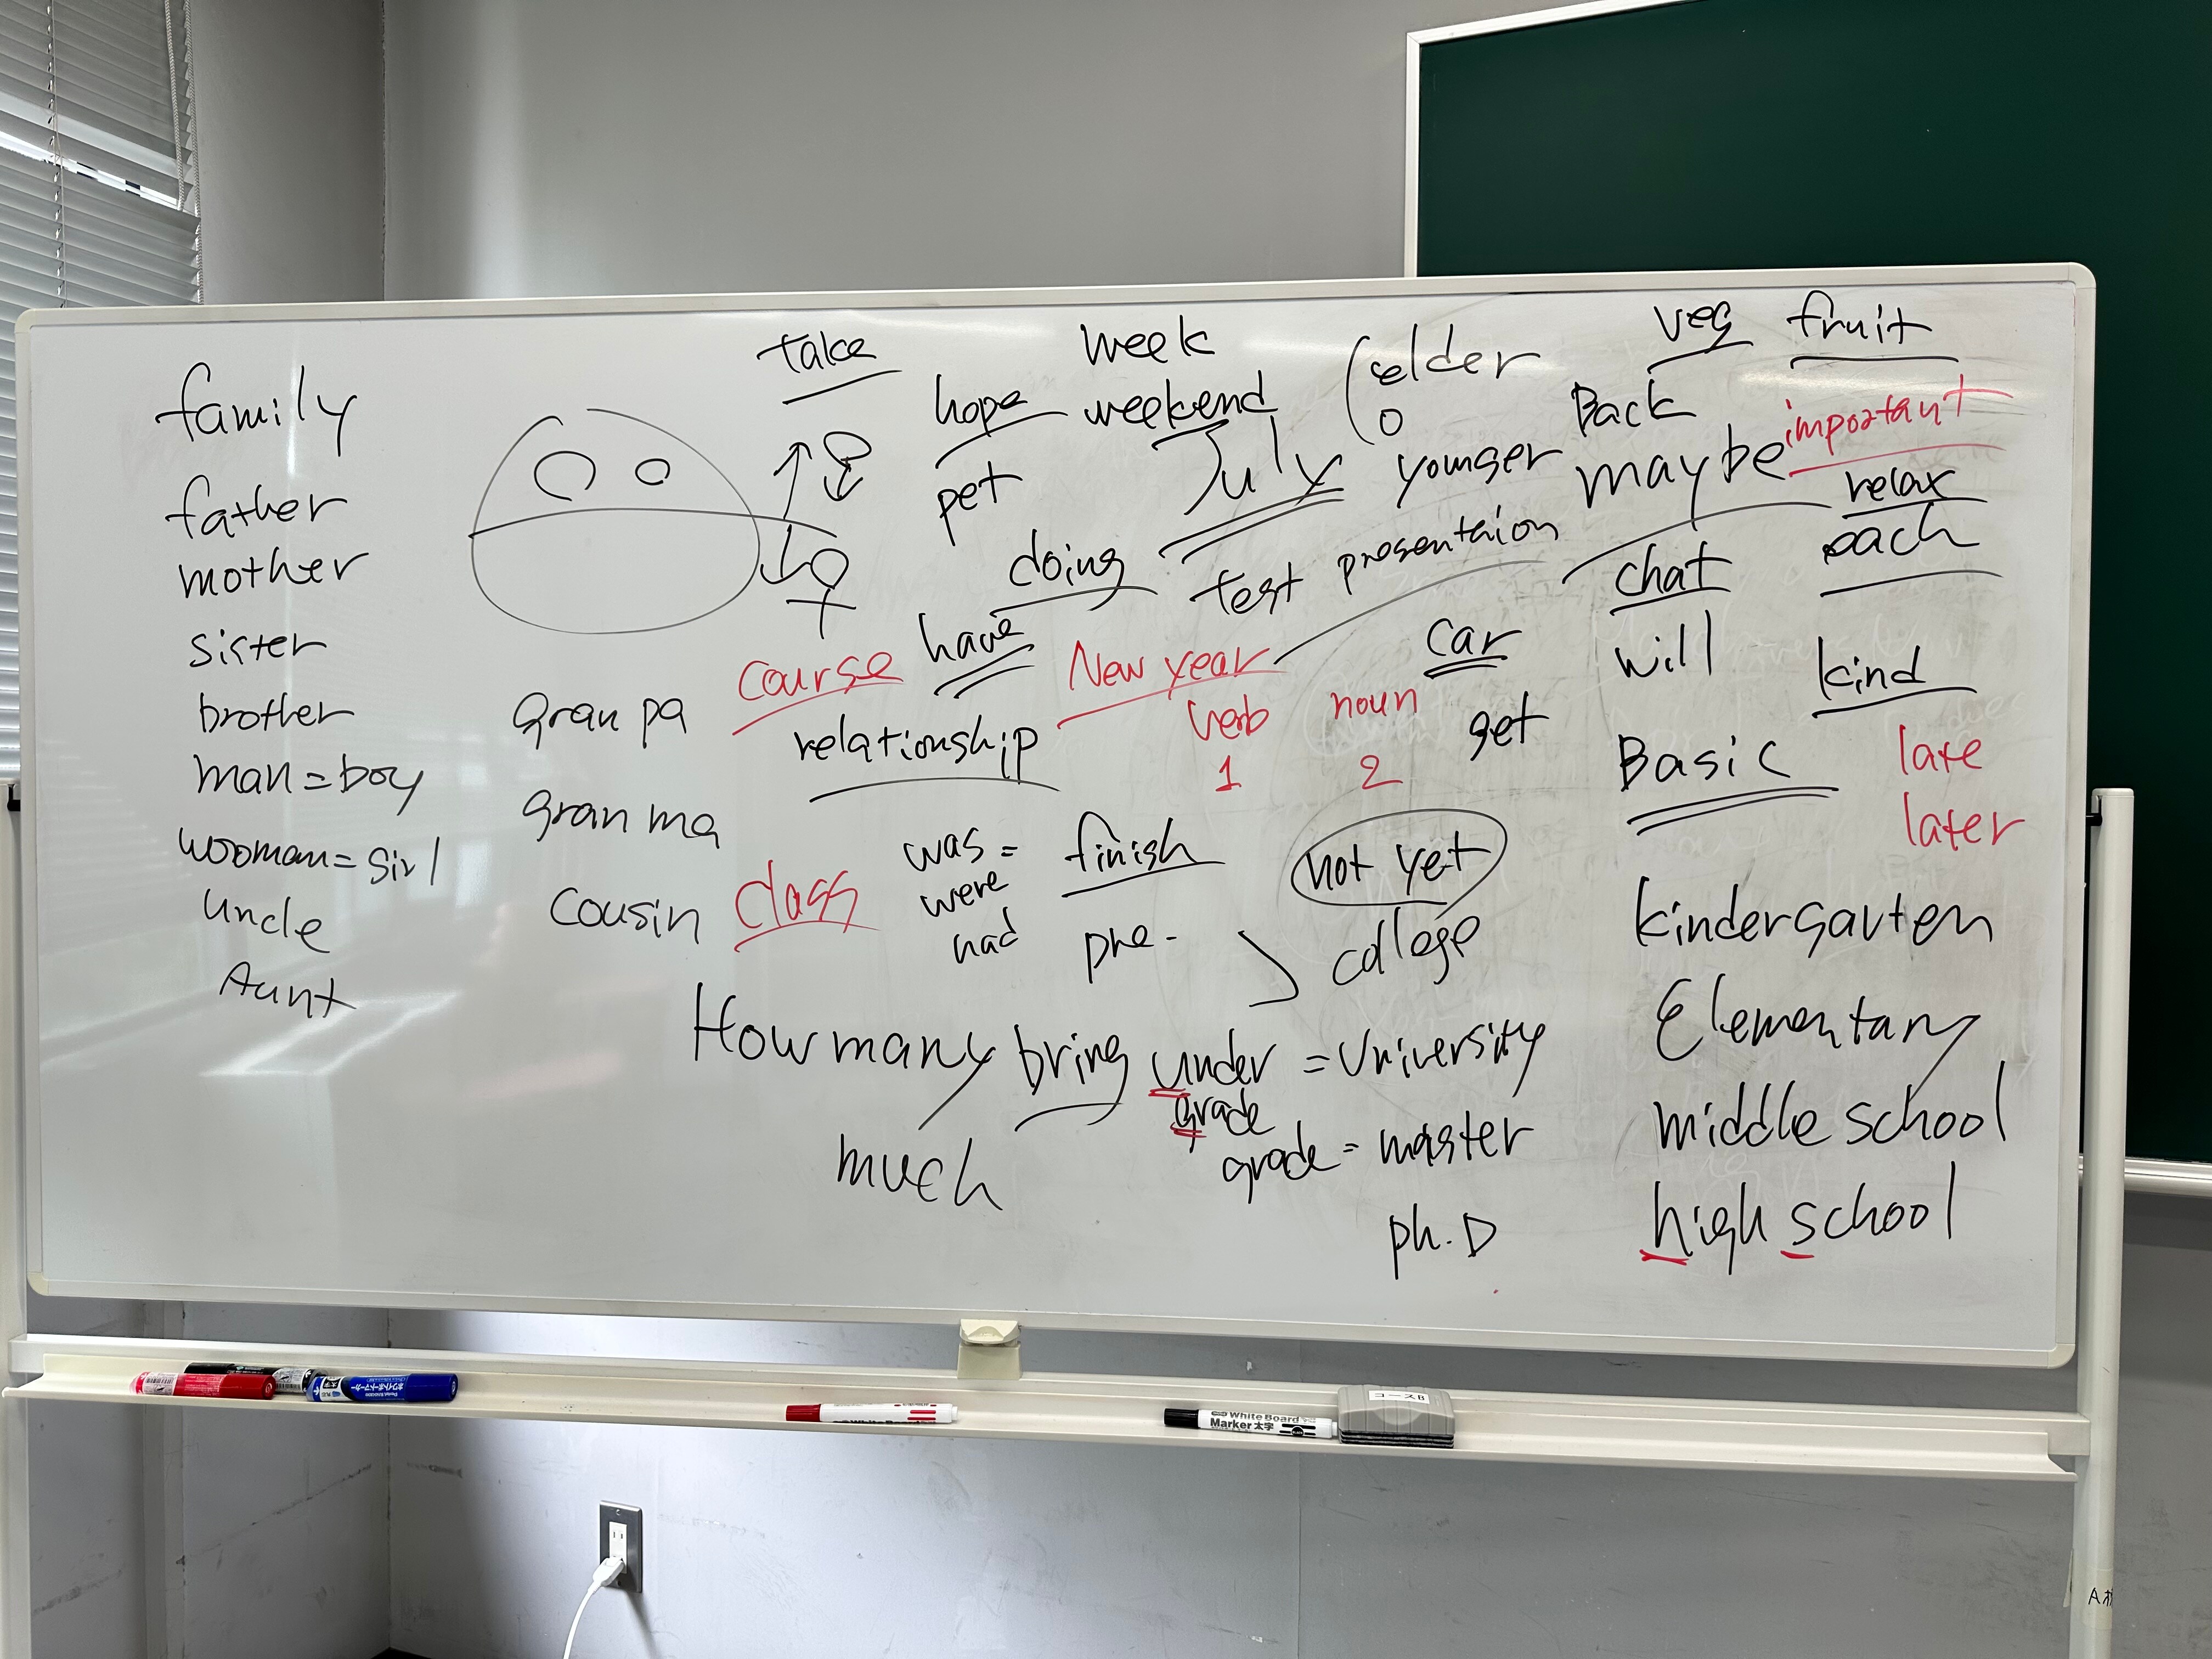 family
father
mother
sister
brother
man = boy
wooman = girl
uncle
Aunt
gran pa
gran ma
cousin
take
hope
pet
week
weekend
July
(elder
o
younger
veg fruit
Back
important
maybe
relax
each
doing
test presentaion
chat
have
course
New year
car
will
kind
relationship
verb noun
1 2
get
Basic
late
later
class
was = finish
were
had
pre-
not yet
college
kindergarten
Elementary
middle school
high school
How many bring
much
under = University
grade
grade = master
ph.D
White Board
Marker 太字
コースB